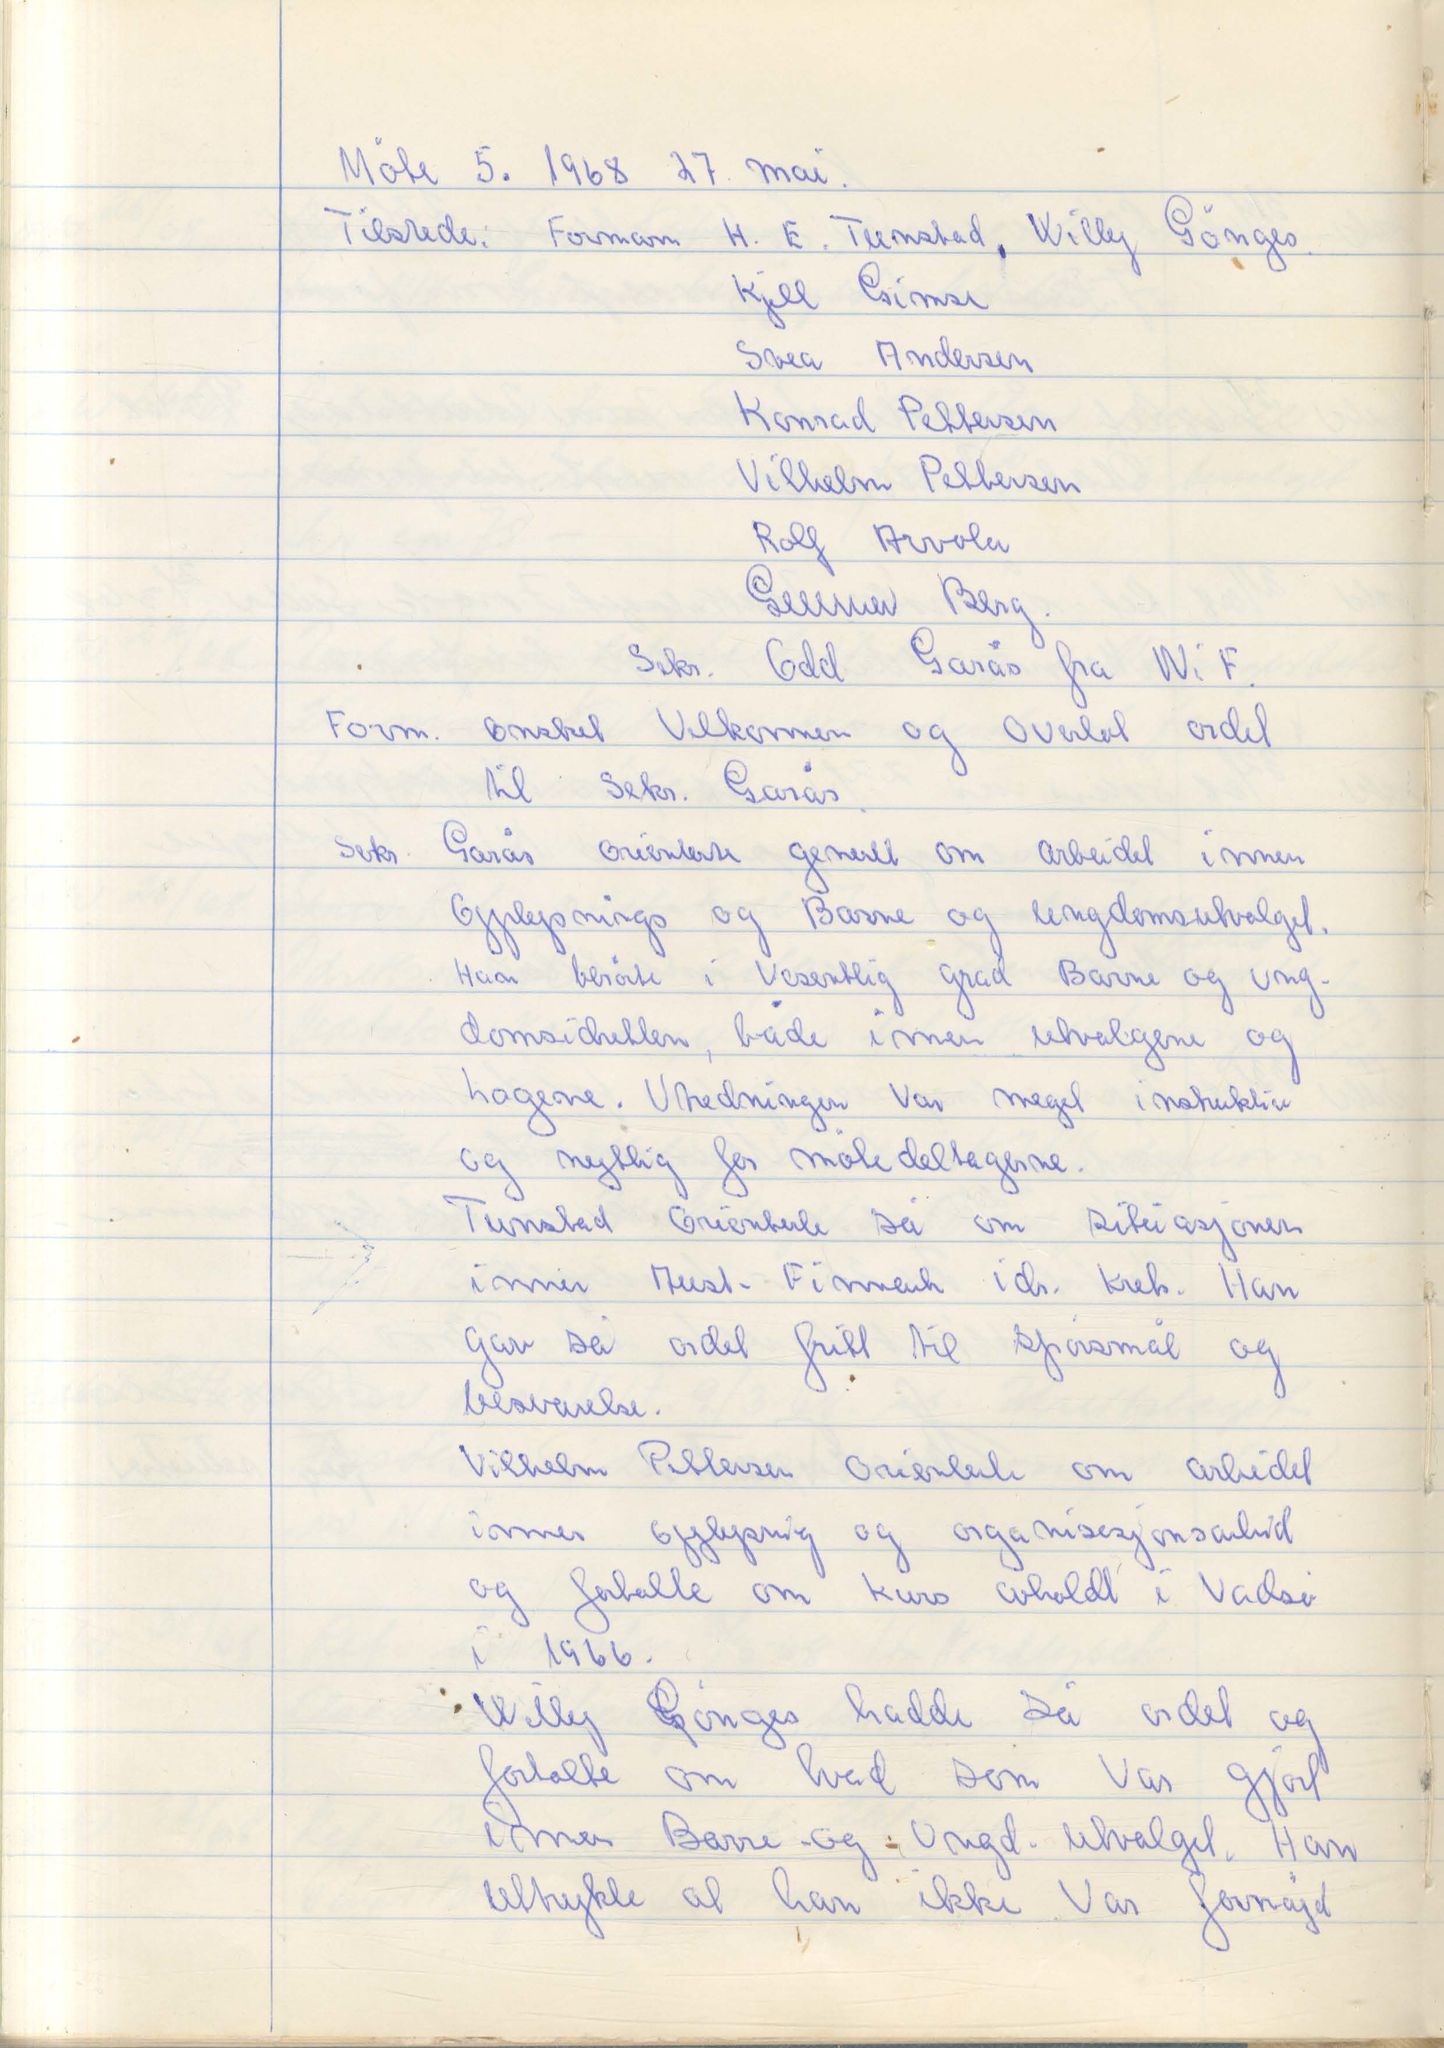 Möte 5. 1968 27. mai.
Tilstede: Formann H. E. Tunstad, Willy Gönges.
Kjell Gimse
Svea Andersen
Konrad Pettersen
Vilhelm Pettersen
Rolf Arvola
Gunnar Berg.
Sekr. Odd Garås fra N.i.F.
Form. önsket Velkommen og overlot ordet
til Sekr. Garås.
Sekr. Garås orienterte generelt om arbeidet innen
Opplysnings og Barne og ungdomsutvalget.
Han berörte i Vesentlig grad Barne og Ung-
domsidretten, både innen utvalgene og
lagene. Utredningen var meget instruktiv
og nyttig for mötedeltagerne.
Tunstad Orienterte så om situasjonen
innen Aust-Finnmark idr. krets. Han
gav så ordet fritt til spörsmål og
besvarelse.
Vilhelm Pettersen Orienterte om arbeidet
innen opplysning og organisasjonsarbeid
og fortalte om kurs avholdt i Vadsö
i 1966.
Willy Gönges hadde så ordet og
fortalte om hvad som var gjört
innen Barne-og Ungd. utvalget. Han
uttrykte at han ikke var fornöjd